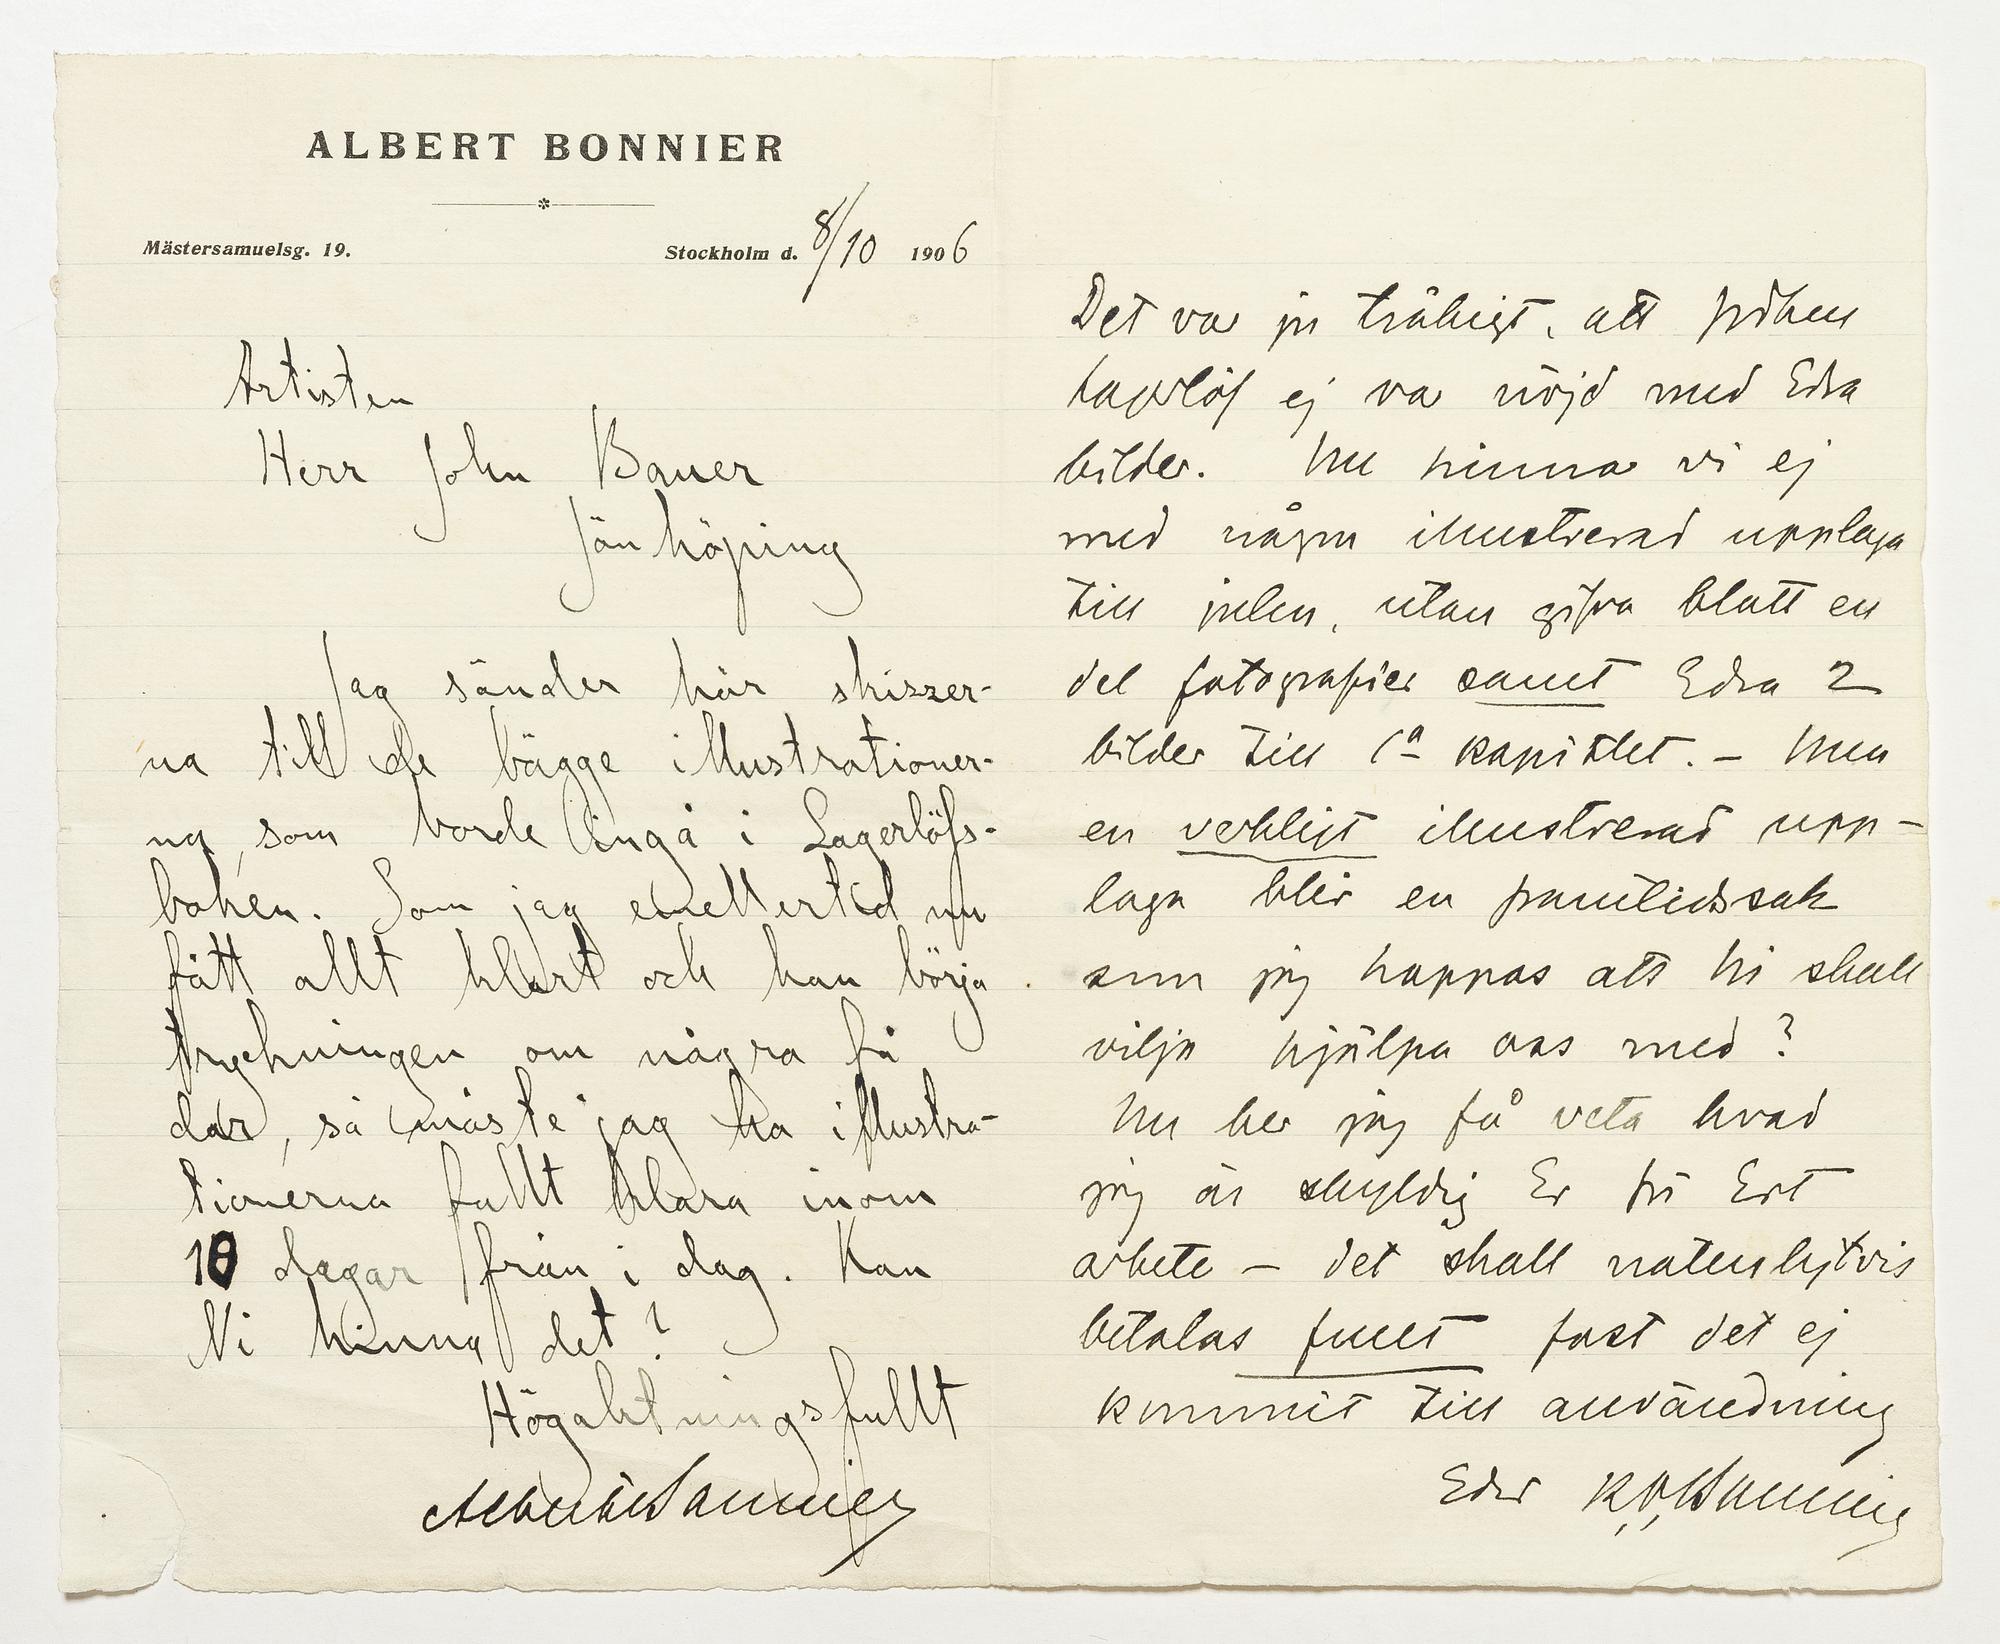 ALBERT BONNIER
Mästersamuelsg. 19. Stockholm d. 8/10 1906
Artisten
Herr John Bauer
Jönköping
Jag sänder här skizzer-
na till de bägge illustrationer-
na, som borde ingå i Lagerlöfs-
boken. Som jag emellertid nu
fått allt klart och kan börja
tryckningen om några få
dar, så måste jag ha illustra-
tionerna fullt klara inom
10 dagar från i dag. Kan
Ni hinna det?
Högaktningsfullt
Albert Bonnier
Det var ju tråkigt, att fröken
Lagerlöf ej var nöjd med Edra
bilder. Nu hinna vi ej
med någon illustrerad upplaga
till julen, utan gifva blott en
del fotografier samt Edra 2
bilder till 1a kapitlet. – Men
en verkligt illustrerad upp-
laga blir en framtidssak
som jag hoppas att Ni skall
vilja hjälpa oss med?
Nu ber jag få veta hvad
jag är skyldig Er för Ert
arbete – det skall naturligtvis
betalas fullt fast det ej
kommit till användning
Eder K.O. Bonnier